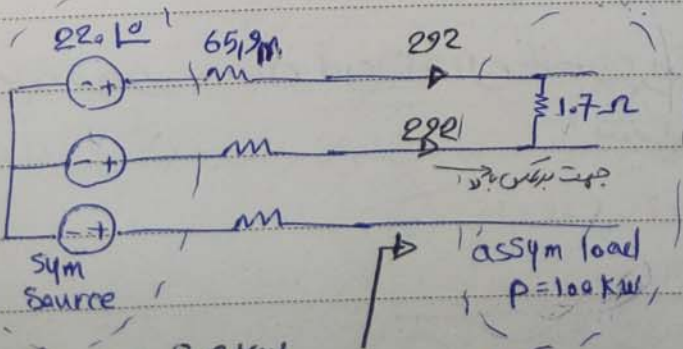 220∠0
65,9m
292
1.7Ω
292
جهت برعکس بالا
Sym
Source
assym load
P=100KW